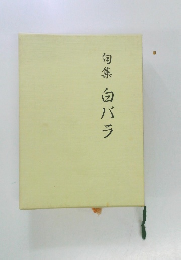 句集
白バラ